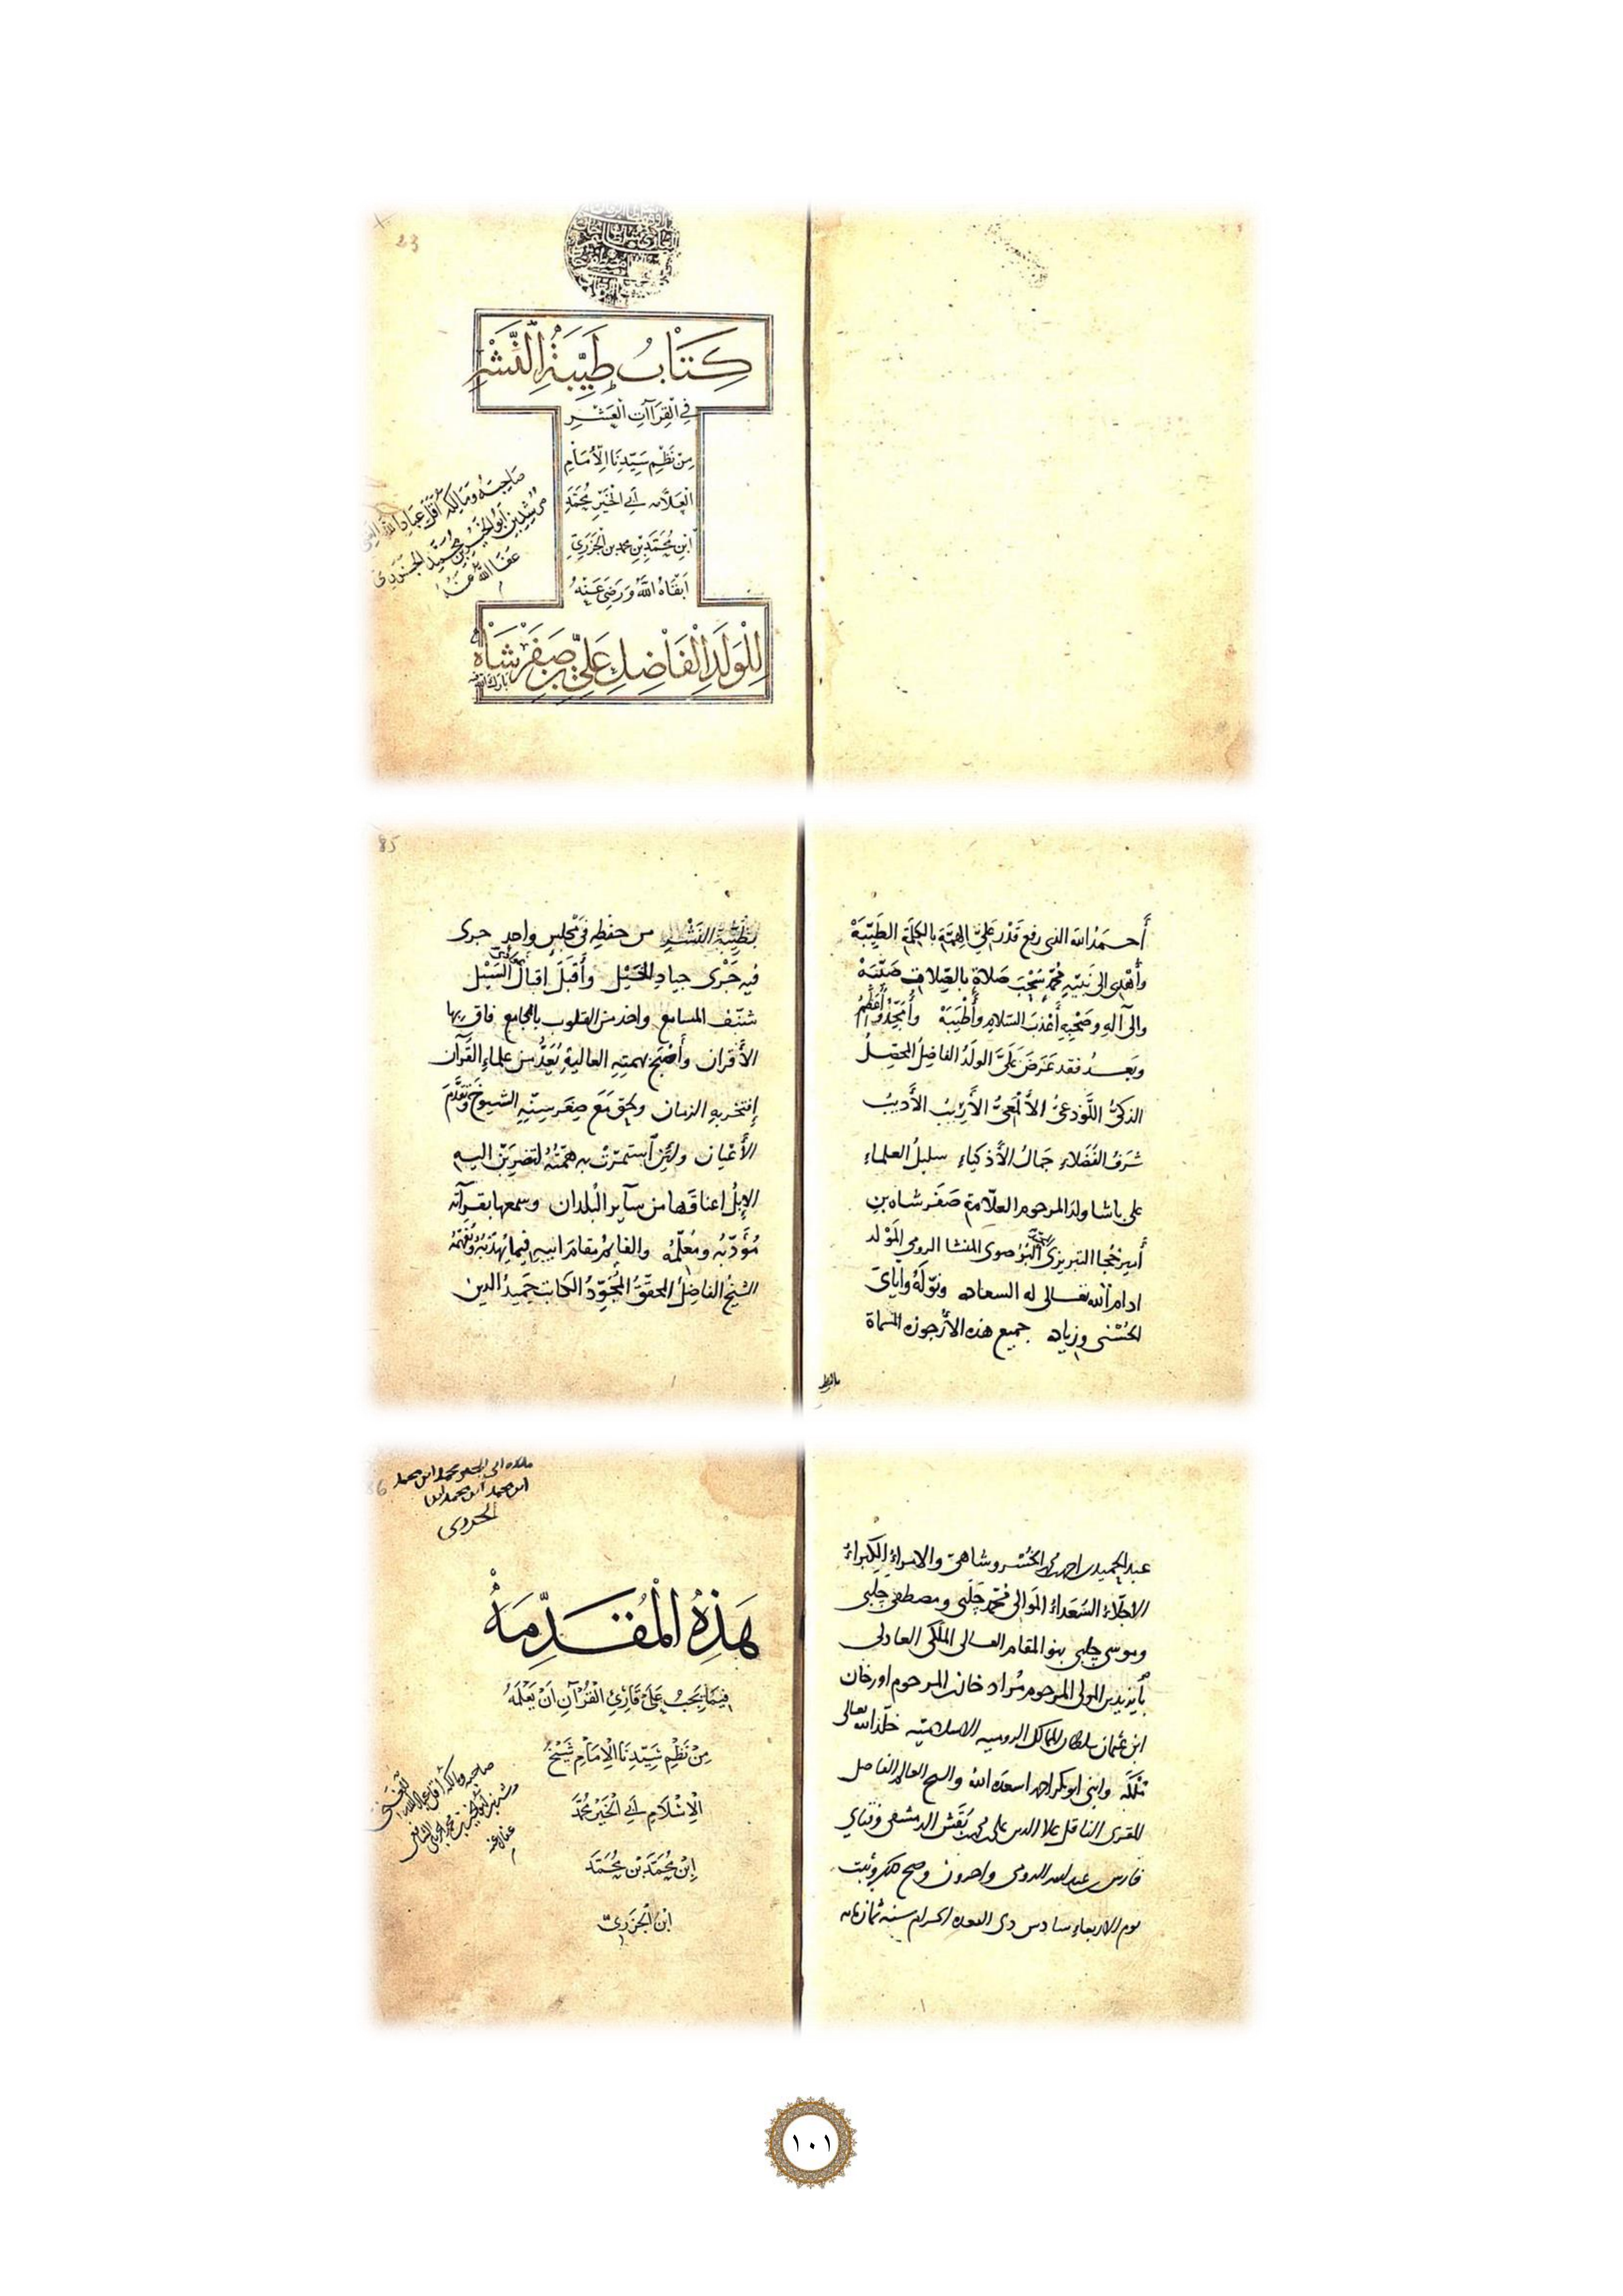 23
كِتَابُ طَيِّبَةِ النَّشْرِ
فِي الْقِرَاآتِ الْعَشْرِ
مِنْ نَظْمِ سَيِّدِنَا الْإِمَامِ
الْعَلَّامَة أَبِي الْخَيْرِ مُحَمَّدِ
ابْنِ مُحَمَّدِ بْنِ محمد بن الْجَزَرِيّ
أَبْقَاهُ اللَّهُ وَرَضِيَ عَنْهُ
لِلْوَلَدِ الْفَاضِلِ عَلِيِّ بْنِ صَفَرْ شَاهْ
بارك الله فيه
صَاحِبُهُ وَمَالِكُهُ أَقَلُّ عِبَادِ اللَّهِ
مرشد بن أبو الخير بن محمد الجزري
عَفَا اللَّهُ عَنْهُ
أحمَدُ الله الذي رفع قَدْرَ عَلِيِّ الهِمَّةِ بالكَلِمَةِ الطَيِّبَةْ
وأُهْدِي إلى نَبِيِّهِ مُحَمَّدٍ سُحْبَ صَلاةٍ بالصِّلات صَيِّبَةْ
وإلى آلِهِ وصَحْبِهِ أَعْذَبَ السَّلامِ وأَطْيَبَهْ وأَمْجَدَهُ وأَعْظَمَهُ
وبَعدُ فقد عَرَضَ عَلَيَّ الولَدُ الفاضِلُ المحَصِّلُ
الذكيُّ اللَّوْذعيُّ الأَلْمَعيُّ الأَرِيبُ الأَديبُ
شَرَفُ الفُضَلاءِ جَمالُ الأَذكياءِ سليلُ العلماءِ
علي باشا ولد المرحوم العلّامة صَفَر شاه بنِ
أمير خُجا التبريزيّ البُرْصَوي المنشا الرومي المَوْلد
ادام الله تعالى له السعاده ونوّلَهُ وايايَ
الحُسْنى وزياده جميع هذه الأُرجوزه المسماة
85
بطَيِّبَة النَشْر من حفظِهِ في مَجْلِسٍ واحِدٍ جرى
فيه جَرْى جيادِ الخَيْل وأَقبَلَ إقبالَ السَّيْل
شنّف المسامع وأخذ من القلوب بالمجامع فاق بها
الأقران وأَصْبَح بهمتِهِ العاليةِ يُعَدُّ من علماءِ القُرآن
إفتَخر بهِ الزمان ولحِق مَعَ صِغَرِ سِنِّهِ الشيوخَ وتَقَدَّمَ
الأَعْيان ولَئِن اَستمرّتْ به هِمّتُهُ لتضرِبَنّ اليه
الإبلُ اعناقَها من ساير البُلدان وسمعها بقرآته
مُؤَدِّبُه ومُعلِّمُه والقايمُ مقام ابيه فيما يُهذّبُهُ ويُفَهِّمُهُ
الشيخُ الفاضِلُ المحقِّقُ المُجَوِّدُ الكاتب حَمِيدُ الدين
عبد الحميد بن احمد بن محمد الخُسْروشاهيّ والامراءُ الكُبراءُ
الاجلّاءُ السُعَداءُ المَوالي محمّد جَلَبي ومصطفى جلبي
وموسى جلبي بنو المقام العالي الملكي العادلي
بايزيد بن المولى المرحوم مُراد خان بن المرحوم اورخان
ابن عثمان سلطان الممالك الروميه الاسلاميّه خلّد الله تعالى
مُلكَه وابني ابو بكر احمد اسعده الله والشيخ العالم الفاضل
المقرى الناقل علا الدين علي بن محمد بن نَفيش الدمشقي وفتاي
فارس بن عبد الله الرومي واخرون وصح ذلك وثبت
يوم الاربعاء سادس ذي القعده الحرام سنة ثمان مائه
86
محمد ابن محمد
ابن محمد ابن محمد
الجزري
هَذِهُ الْمُقَدِّمَهْ
فِيمَا يَجِبُ عَلَى قَارِئِ الْقُرْآنِ أَنْ يَعْلَمَهُ
مِنْ نَظْمِ سَيِّدِنَا الْإِمَامِ شَيْخِ
الْإِسْلَامِ أَبِي الْخَيْرِ مُحَمَّدِ
ابْنِ مُحَمَّدِ بْنِ مُحَمَّدِ
ابْنِ الْجَزَرِيّ
صاحبه ومالكه أقل عباد الله
عفا الله عنه
١٠١